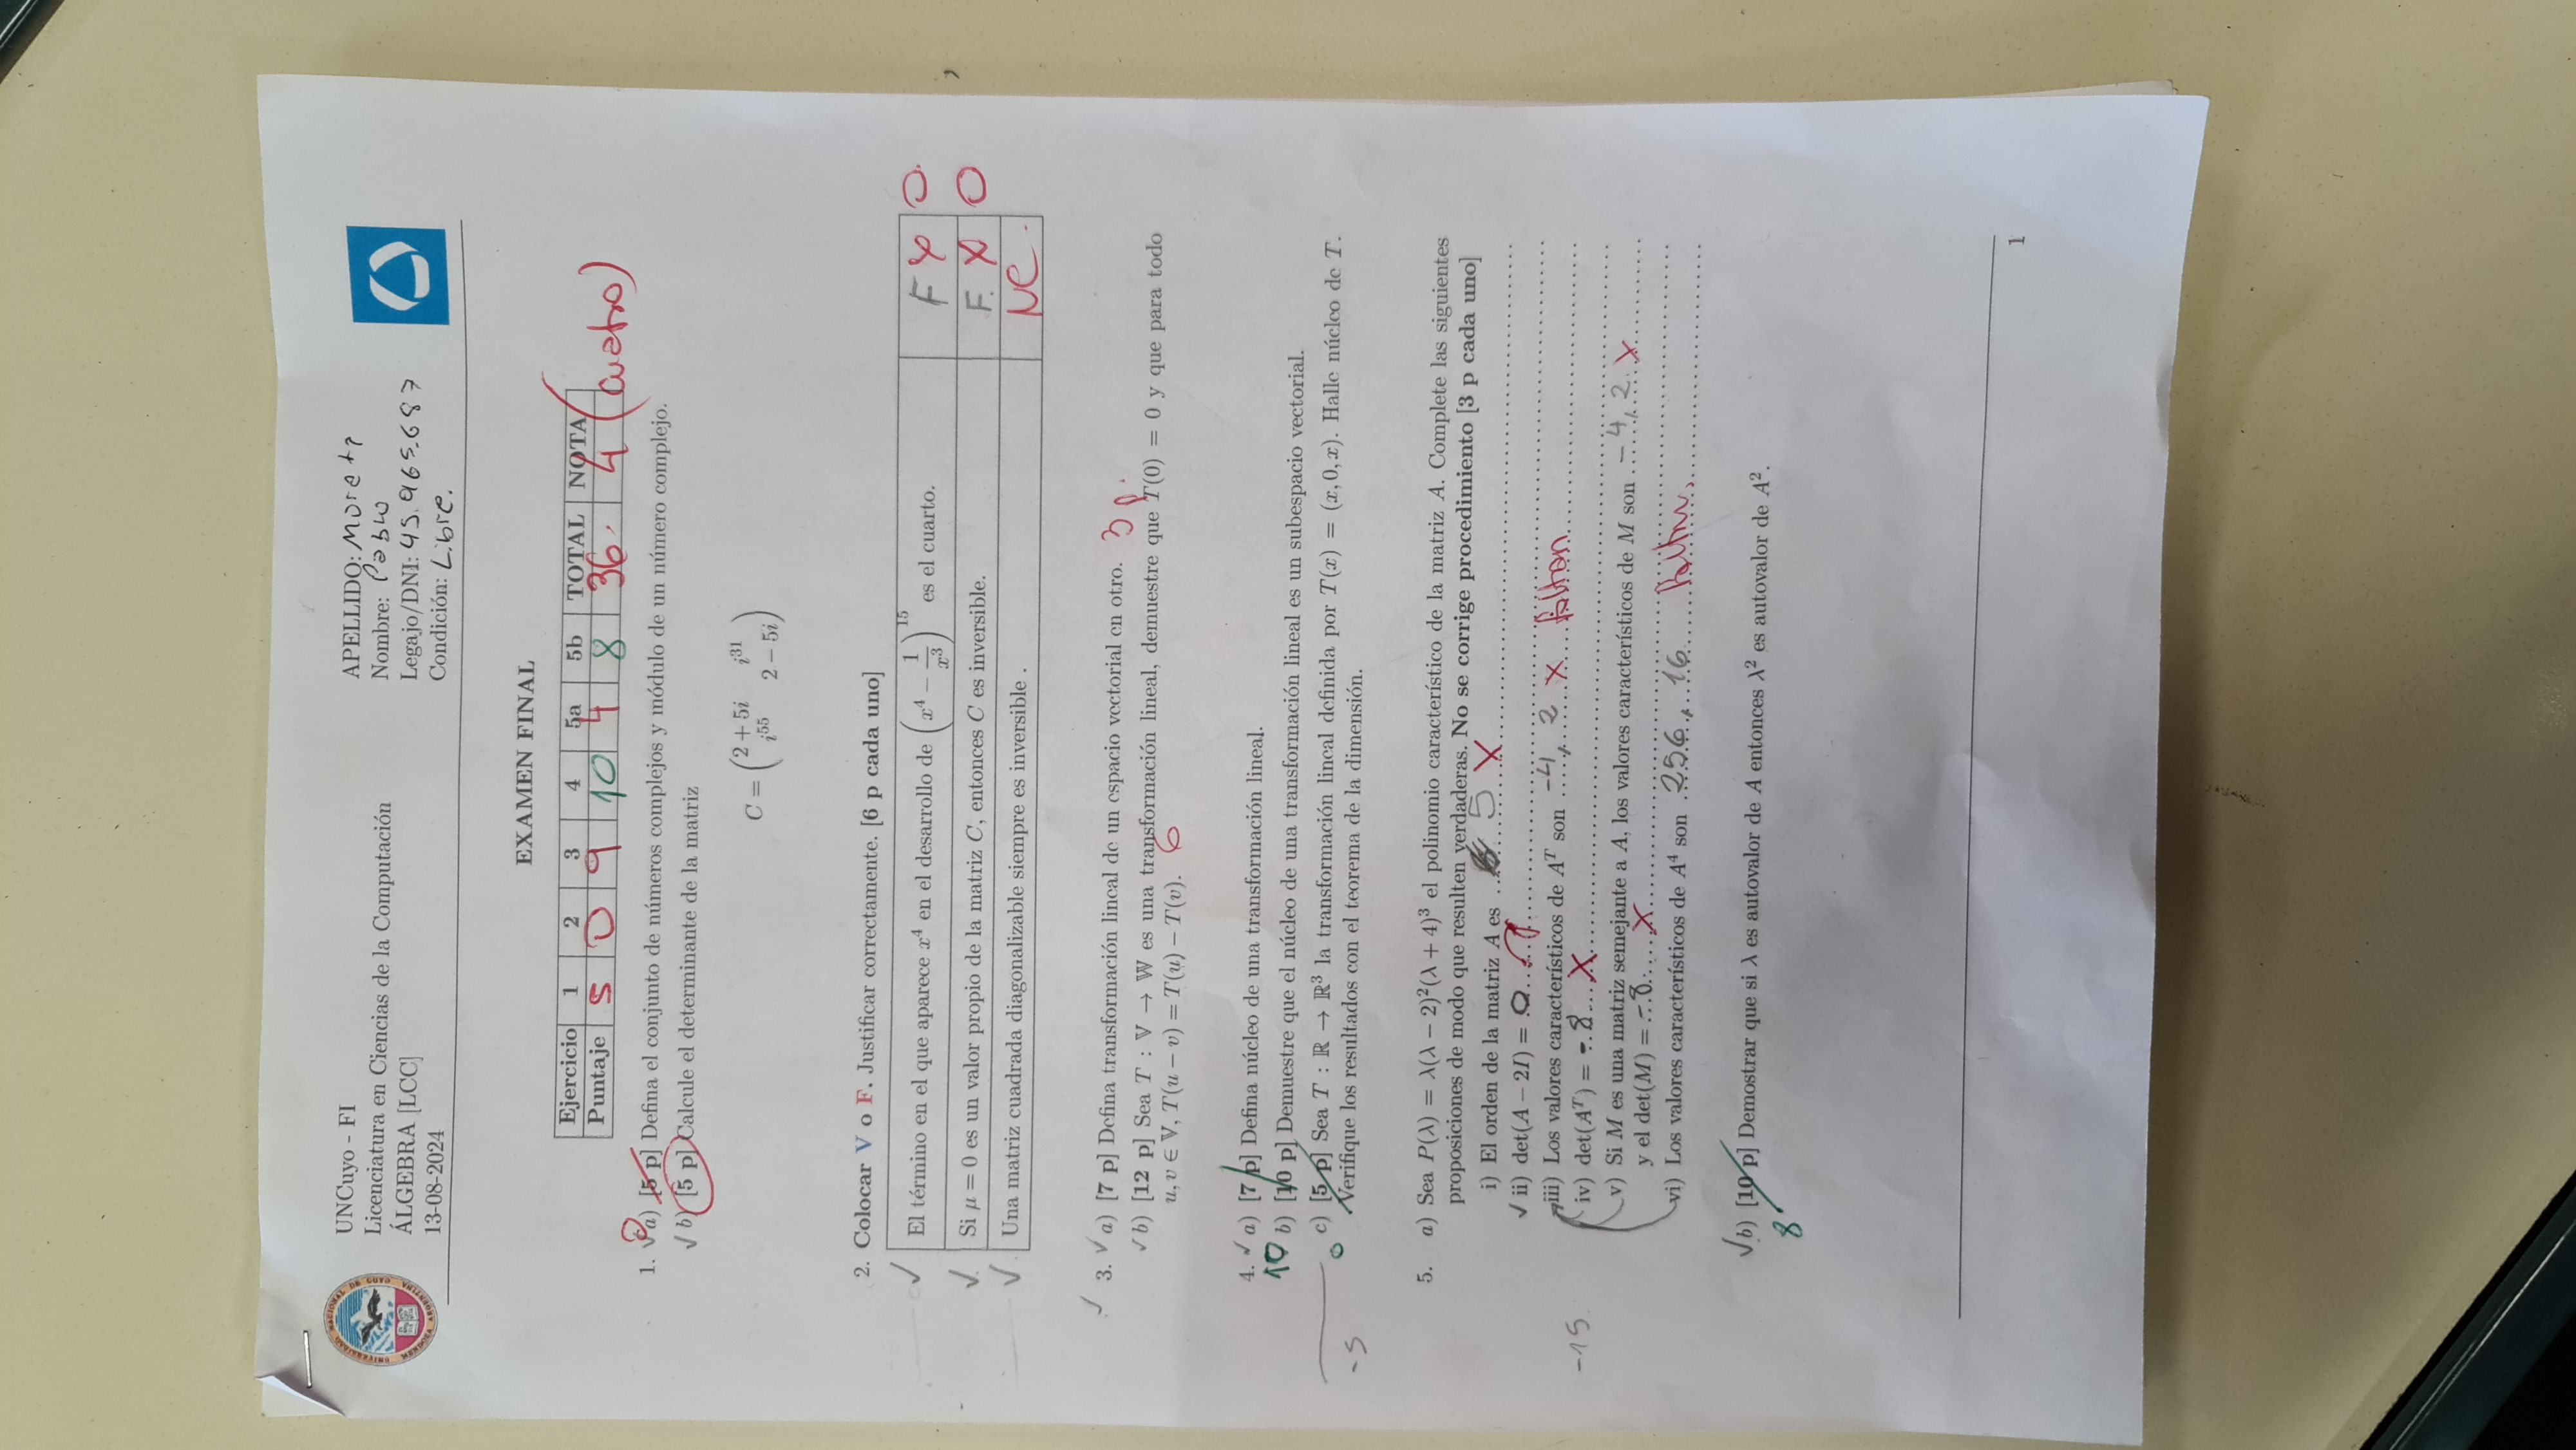 UNCuyo - FI
Licenciatura en Ciencias de la Computación
ÁLGEBRA [LCC]
13-08-2024
APELLIDO: Morett
Nombre: Pablo
Legajo/DNI: 45.965.687
Condición: Libre.
EXAMEN FINAL
Ejercicio 1 2 3 4 5a 5b TOTAL NOTA
Puntaje 5 0 9 10 4 8 36. 4 (cuatro)
1. ✓ a) [5 p] Defina el conjunto de números complejos y módulo de un número complejo.
✓ b) [5 p] Calcule el determinante de la matriz
C = ( 2 + 5i i³¹
i⁵⁵ 2 − 5i )
2. Colocar V o F. Justificar correctamente. [6 p cada uno]
✓ El término en el que aparece x⁴ en el desarrollo de (x⁴ − 1/x³)¹⁵ es el cuarto. F X 0
✓ Si μ = 0 es un valor propio de la matriz C, entonces C es inversible. F X 0
✓ Una matriz cuadrada diagonalizable siempre es inversible . NC.
✓ 3. ✓ a) [7 p] Defina transformación lineal de un espacio vectorial en otro. 3 p.
✓ b) [12 p] Sea T : 𝕍 → 𝕎 es una transformación lineal, demuestre que T(0) = 0 y que para todo
u, v ∈ 𝕍, T(u − v) = T(u) − T(v). 6
4. ✓ a) [7 p] Defina núcleo de una transformación lineal.
10 b) [10 p] Demuestre que el núcleo de una transformación lineal es un subespacio vectorial.
0 c) [5 p] Sea T : ℝ → ℝ³ la transformación lineal definida por T(x) = (x, 0, x). Halle núcleo de T.
-5 Verifique los resultados con el teorema de la dimensión.
5. a) Sea P(λ) = λ(λ − 2)²(λ + 4)³ el polinomio característico de la matriz A. Complete las siguientes
proposiciones de modo que resulten verdaderas. No se corrige procedimiento [3 p cada uno]
i) El orden de la matriz A es 5 X
✓ ii) det(A − 2I) = 0
iii) Los valores característicos de Aᵀ son -4, 2 x faltan
-15. iv) det(Aᵀ) = -8 X
v) Si M es una matriz semejante a A, los valores característicos de M son -4, 2 X
y el det(M) = -8 X
vi) Los valores característicos de A⁴ son 256, 16 faltan.
✓ b) [10 p] Demostrar que si λ es autovalor de A entonces λ² es autovalor de A².
8
1